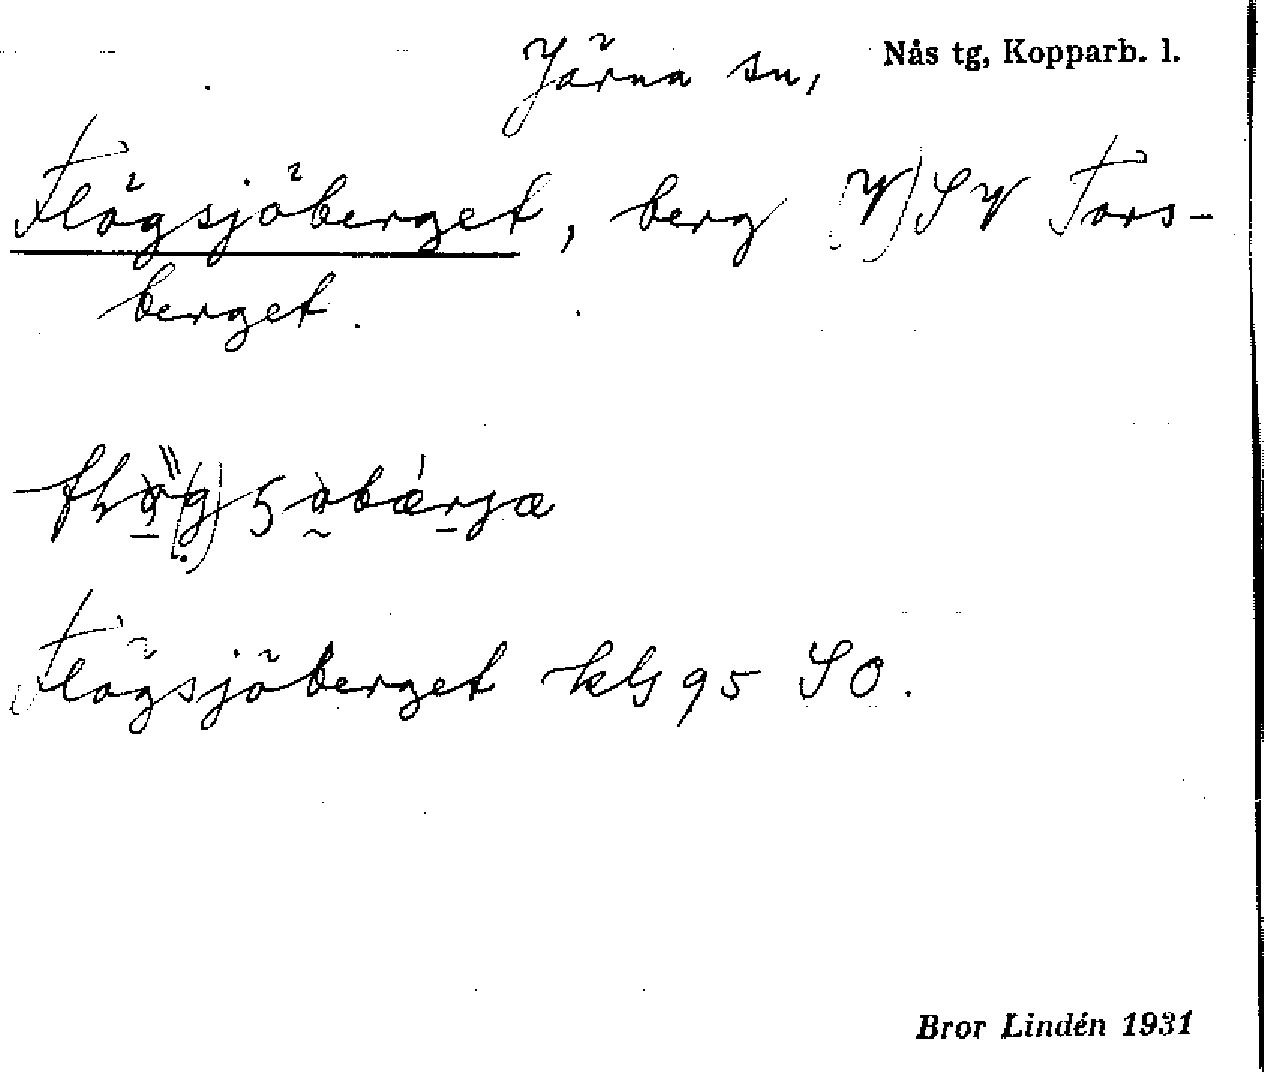 Järna sn, Nås tg, Kopparb. l.
Flögsjöberget, berg (V)SV Fors-
berget.
Flögsjöberget kbl 95 SO.
Bror Lindén 1931